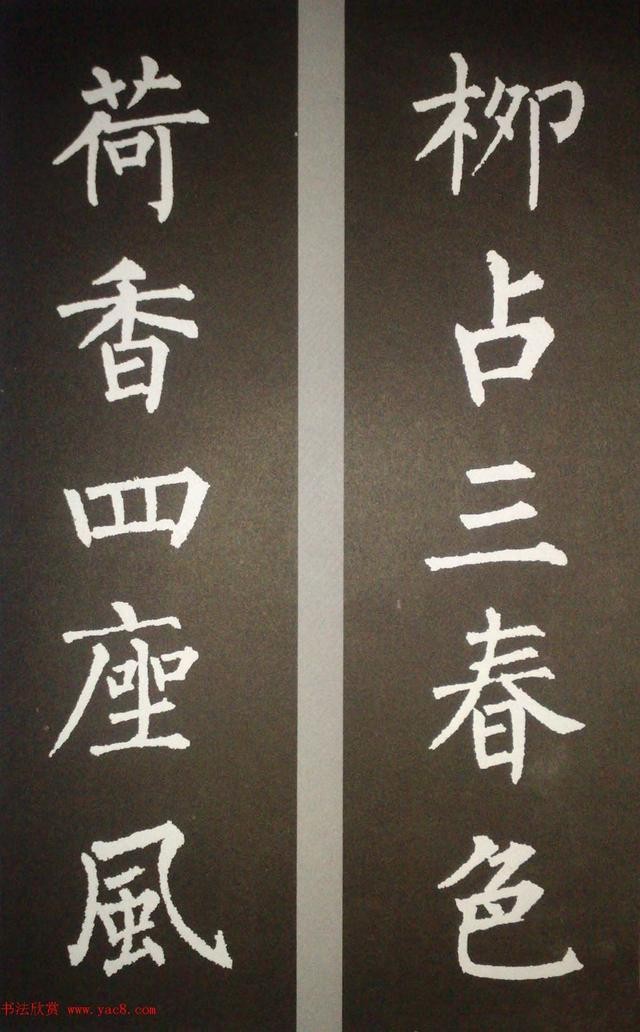 柳占三春色
荷香四座風
书法欣赏 www.yac8.com